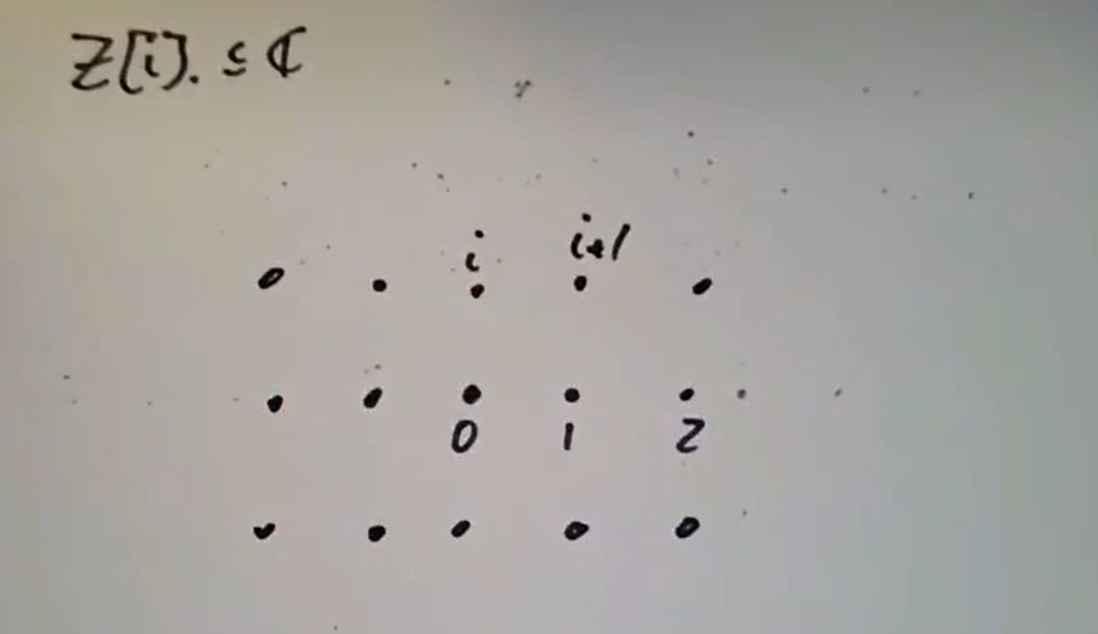 Z[i]. ≤ ℂ
i i+1
0 1 2